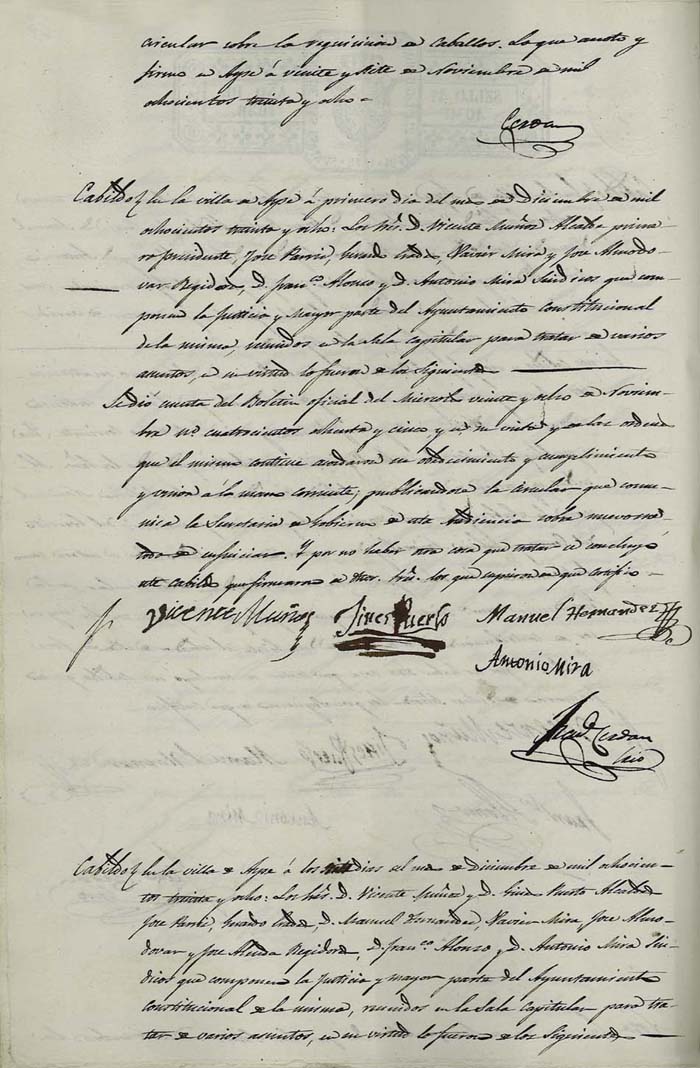 circular sobre la requisicion de Caballos. Lo que anoto y
firmo en Aspe á veinte y siete de Noviembre de mil
ochocientos treinta y ocho =
Cerdan
Cabildo En la villa de Aspe á primero dia del mes de Diciembre de mil
ochocientos treinta y ocho: Los Sres. D. Vicente Muñoz Alcalde prime-
ro presidente, Jose Pavia, Xavier Mira y Jose Almodo-
var Regidores, D. Franco. Alonso y D. Antonio Mira Sindicos que com-
ponen la Justicia y Mayor parte del Ayuntamiento Constitucional
de la misma, reunidos en la Sala Capitular para tratar de varios
asuntos, en su virtud lo fueron de los Siguientes
Se dió cuenta del Boletin oficial del Miercoles veinte y ocho de Noviem-
bre no. cuatrocientos ochenta y cinco y en su vista y de las ordenes
que el mismo contiene acordaron su obedecimiento y cumplimiento
y union á la mano corriente; publicandose la circular que comu-
nica la Secretaria de Gobierno de esta Audiencia sobre nuevo me-
todo de enjuiciar. Y por no haber otra cosa que tratar se concluyó
este Cabildo que firmaron dhos. Sres. los que supieron de que certifico
Vicente Muñoz Gines Puerto Manuel Hernandez
Antonio Mira
Cerdan
Srio
Cabildo En la villa de Aspe á los siete dias del mes de Diciembre de mil ochocien-
tos treinta y ocho: Los Sres. D. Vicente Muñoz y D. Gines Puerto Alcaldes
Jose Pavia, D. Manuel Fernandez, Xavier Mira, Jose Almo-
dovar y Jose Alenda Regidores, D. Franco. Alonzo y D. Antonio Mira Sin-
dicos que componen la Justicia y mayor parte del Ayuntamiento
Constitucional de la misma, reunidos en la Sala Capitular para tra-
tar de varios asuntos, en su virtud lo fueron de los Siguientes